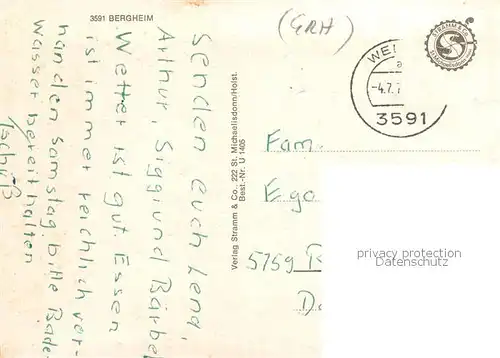 3591 BERGHEIM
(GRH)
STRAMM & CO.
St. Michaelisdonn
-4.7.
3591
Senden euch Lena,
Arthur, Siggi und Bärbel
Wetter ist gut. Essen
ist immer reichlich vor-
handen Samstag bitte Bade-
wasser bereithalten
Tschüß
Verlag Stramm & Co., 222 St. Michaelisdonn/Holst.
Best.-Nr. U 1405
Fam.
Ego
5759
privacy protection
Datenschutz